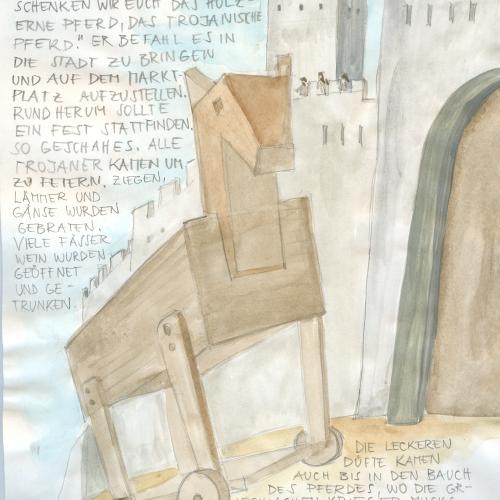 SCHENKEN WIR EUCH DAS HÖLZ-
ERNE PFERD, DAS TROJANISCHE
PFERD." ER BEFAHL ES IN
DIE STADT ZU BRINGEN
UND AUF DEM MARKT-
PLATZ AUFZUSTELLEN.
RUNDHERUM SOLLTE
EIN FEST STATTFINDEN.
SO GESCHAH ES. ALLE
TROJANER KAMEN UM
ZU FEIERN. ZIEGEN,
LÄMMER UND
GÄNSE WURDEN
GEBRATEN.
VIELE FÄSSER
WEIN WURDEN
GEÖFFNET
UND GE-
TRUNKEN.
DIE LECKEREN
DÜFTE KAMEN
AUCH BIS IN DEN BAUCH
DES PFERDES, WO DIE GR-